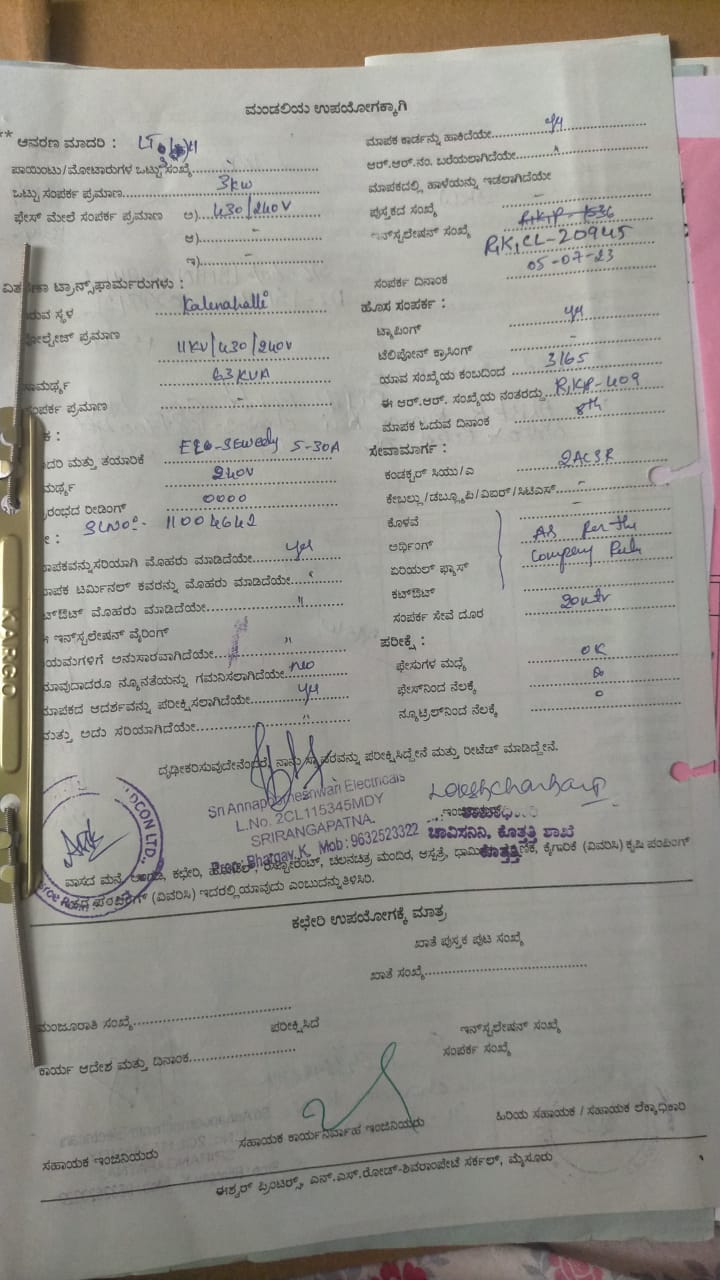 ಮಂಡಲಿಯ ಉಪಯೋಗಕ್ಕಾಗಿ
** ಆವರಣ ಮಾದರಿ : LT
ಪಾಯಿಂಟು/ಮೋಟಾರುಗಳ ಒಟ್ಟು ಸಂಖ್ಯೆ
ಒಟ್ಟು ಸಂಪರ್ಕ ಪ್ರಮಾಣ 3kw
ಫೇಸ್ ಮೇಲೆ ಸಂಪರ್ಕ ಪ್ರಮಾಣ ಅ) 430/240V
ಆ) -
ಇ) -
ಟ್ರಾನ್ಸ್‌ಫಾರ್ಮರುಗಳು :
ರುವ ಸ್ಥಳ Kalenahalli
ಪ್ರಮಾಣ 11KV/430/240V
ಸಾಮರ್ಥ್ಯ 63KVA
ಸಂಪರ್ಕ ಪ್ರಮಾಣ -
ಕ :
ದರಿ ಮತ್ತು ತಯಾರಿಕೆ 5-30A
ಮರ್ಥ್ಯ 240V
ರಂಭದ ರೀಡಿಂಗ್ 0000
ೇ : SLNO:- 11004642
ಾಪಕವನ್ನು ಸರಿಯಾಗಿ ಮೊಹರು ಮಾಡಿದೆಯೇ yes
ಾಪಕ ಟರ್ಮಿನಲ್ ಕವರನ್ನು ಮೊಹರು ಮಾಡಿದೆಯೇ "
ಟ್‌ಔಟ್ ಮೊಹರು ಮಾಡಿದೆಯೇ "
ಇನ್‌ಸ್ಟಲೇಷನ್ ವೈರಿಂಗ್
ಯಮಗಳಿಗೆ ಅನುಸಾರವಾಗಿದೆಯೇ "
ಯಾವುದಾದರೂ ನ್ಯೂನತೆಯನ್ನು ಗಮನಿಸಲಾಗಿದೆಯೇ no
ಮಾಪಕದ ಆದರ್ಶವನ್ನು ಪರೀಕ್ಷಿಸಲಾಗಿದೆಯೇ yes
ಮತ್ತು ಅದು ಸರಿಯಾಗಿದೆಯೇ "
ಮಾಪಕ ಕಾರ್ಡನ್ನು ಹಾಕಿದೆಯೇ yes
ಆರ್.ಆರ್.ನಂ. ಬರೆಯಲಾಗಿದೆಯೇ "
ಮಾಪಕದಲ್ಲಿ ಹಾಳೆಯನ್ನು ಇಡಲಾಗಿದೆಯೇ
ಪುಸ್ತಕದ ಸಂಖ್ಯೆ -
ಇನ್‌ಸ್ಟಲೇಷನ್ ಸಂಖ್ಯೆ RKCL-20945
ಸಂಪರ್ಕ ದಿನಾಂಕ 05-07-23
ಹೊಸ ಸಂಪರ್ಕ :
ಟ್ಯಾಪಿಂಗ್ yes
ಟೆಲಿಫೋನ್ ಕ್ರಾಸಿಂಗ್ -
ಯಾವ ಸಂಖ್ಯೆಯ ಕಂಬದಿಂದ 3165
ಈ ಆರ್.ಆರ್. ಸಂಖ್ಯೆಯ ನಂತರದ್ದು RKP-409
ಮಾಪಕ ಓದುವ ದಿನಾಂಕ 8th
ಸೇವಾಮಾರ್ಗ :
ಕಂಡಕ್ಟರ್ ಸಿಯು/ಎ 2ACSR
ಕೇಬಲ್ಲು/ಡಬ್ಲ್ಯೂಪಿ/ವಿಐಆರ್/ಸಿಟಿಎಸ್ -
ಕೊಳವೆ -
ಅರ್ಥಿಂಗ್ As per the
ಏರಿಯಲ್ ಫ್ಯೂಸ್ Company Rule
ಕಟ್‌ಔಟ್
ಸಂಪರ್ಕ ಸೇವೆ ದೂರ 20mtr
ಪರೀಕ್ಷೆ :
ಫೇಸುಗಳ ಮಧ್ಯೆ OK
ಫೇಸ್‌ನಿಂದ ನೆಲಕ್ಕೆ
ನ್ಯೂಟ್ರಲ್‌ನಿಂದ ನೆಲಕ್ಕೆ 0
ದೃಢೀಕರಿಸುವುದೇನೆಂದರೆ, ನಾನು ಸ್ಥಾವರವನ್ನು ಪರೀಕ್ಷಿಸಿದ್ದೇನೆ ಮತ್ತು ರೀಟೆಡ್ ಮಾಡಿದ್ದೇನೆ.
Sri Annapoorneshwari Electricals
L.No. 2CL115345MDY
SRIRANGAPATNA.
Prop: Bhargav.K, Mob: 9632523322
ಚಾವಿಸನಿನಿ, ಕೊತ್ತತ್ತಿ ಶಾಖೆ
ಕೊತ್ತತ್ತಿ
ವಾಸದ ಮನೆ, ಅಂಗಡಿ, ಕಛೇರಿ, ಹೋಟೆಲ್, ರೆಸ್ಟೋರೆಂಟ್, ಚಲನಚಿತ್ರ ಮಂದಿರ, ಆಸ್ಪತ್ರೆ, ಕೈಗಾರಿಕೆ (ವಿವರಿಸಿ) ಕೃಷಿ ಪಂಪಿಂಗ್
(ವಿವರಿಸಿ) ಇದರಲ್ಲಿ ಯಾವುದು ಎಂಬುದನ್ನು ತಿಳಿಸಿರಿ.
ಕಛೇರಿ ಉಪಯೋಗಕ್ಕೆ ಮಾತ್ರ
ಖಾತೆ ಪುಸ್ತಕ ಪುಟ ಸಂಖ್ಯೆ
ಖಾತೆ ಸಂಖ್ಯೆ
ಮಂಜೂರಾತಿ ಸಂಖ್ಯೆ ಪರೀಕ್ಷಿಸಿದೆ ಇನ್‌ಸ್ಟಲೇಷನ್ ಸಂಖ್ಯೆ
ಕಾರ್ಯ ಆದೇಶ ಮತ್ತು ದಿನಾಂಕ ಸಂಪರ್ಕ ಸಂಖ್ಯೆ
ಸಹಾಯಕ ಇಂಜಿನಿಯರು ಸಹಾಯಕ ಕಾರ್ಯನಿರ್ವಾಹ ಇಂಜಿನಿಯರು ಹಿರಿಯ ಸಹಾಯಕ / ಸಹಾಯಕ ಲೆಕ್ಕಾಧಿಕಾರಿ
ಈಶ್ವರ್ ಪ್ರಿಂಟರ್ಸ್, ಎನ್.ಎಸ್.ರೋಡ್-ಶಿವರಾಂಪೇಟೆ ಸರ್ಕಲ್, ಮೈಸೂರು
KARGO